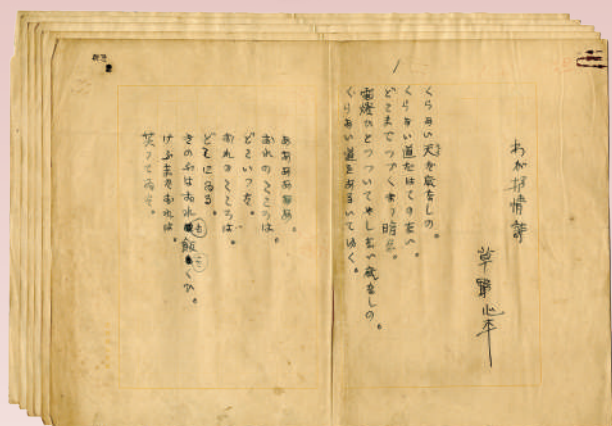 わが抒情詩
草野心平
くらあい天だ底なしの。
くらあい道だはてのない。
どこまでつづくまつ暗な。
電燈ひとつついてやしない底なしの。
くらあい道をあるいてゆく。
ああああああ。
おれのこころは。
どこいつた。
おれのこころは。
どこにゐる。
きのふはおれも飯をくひ。
けふまたおれは。
笑つてゐた。